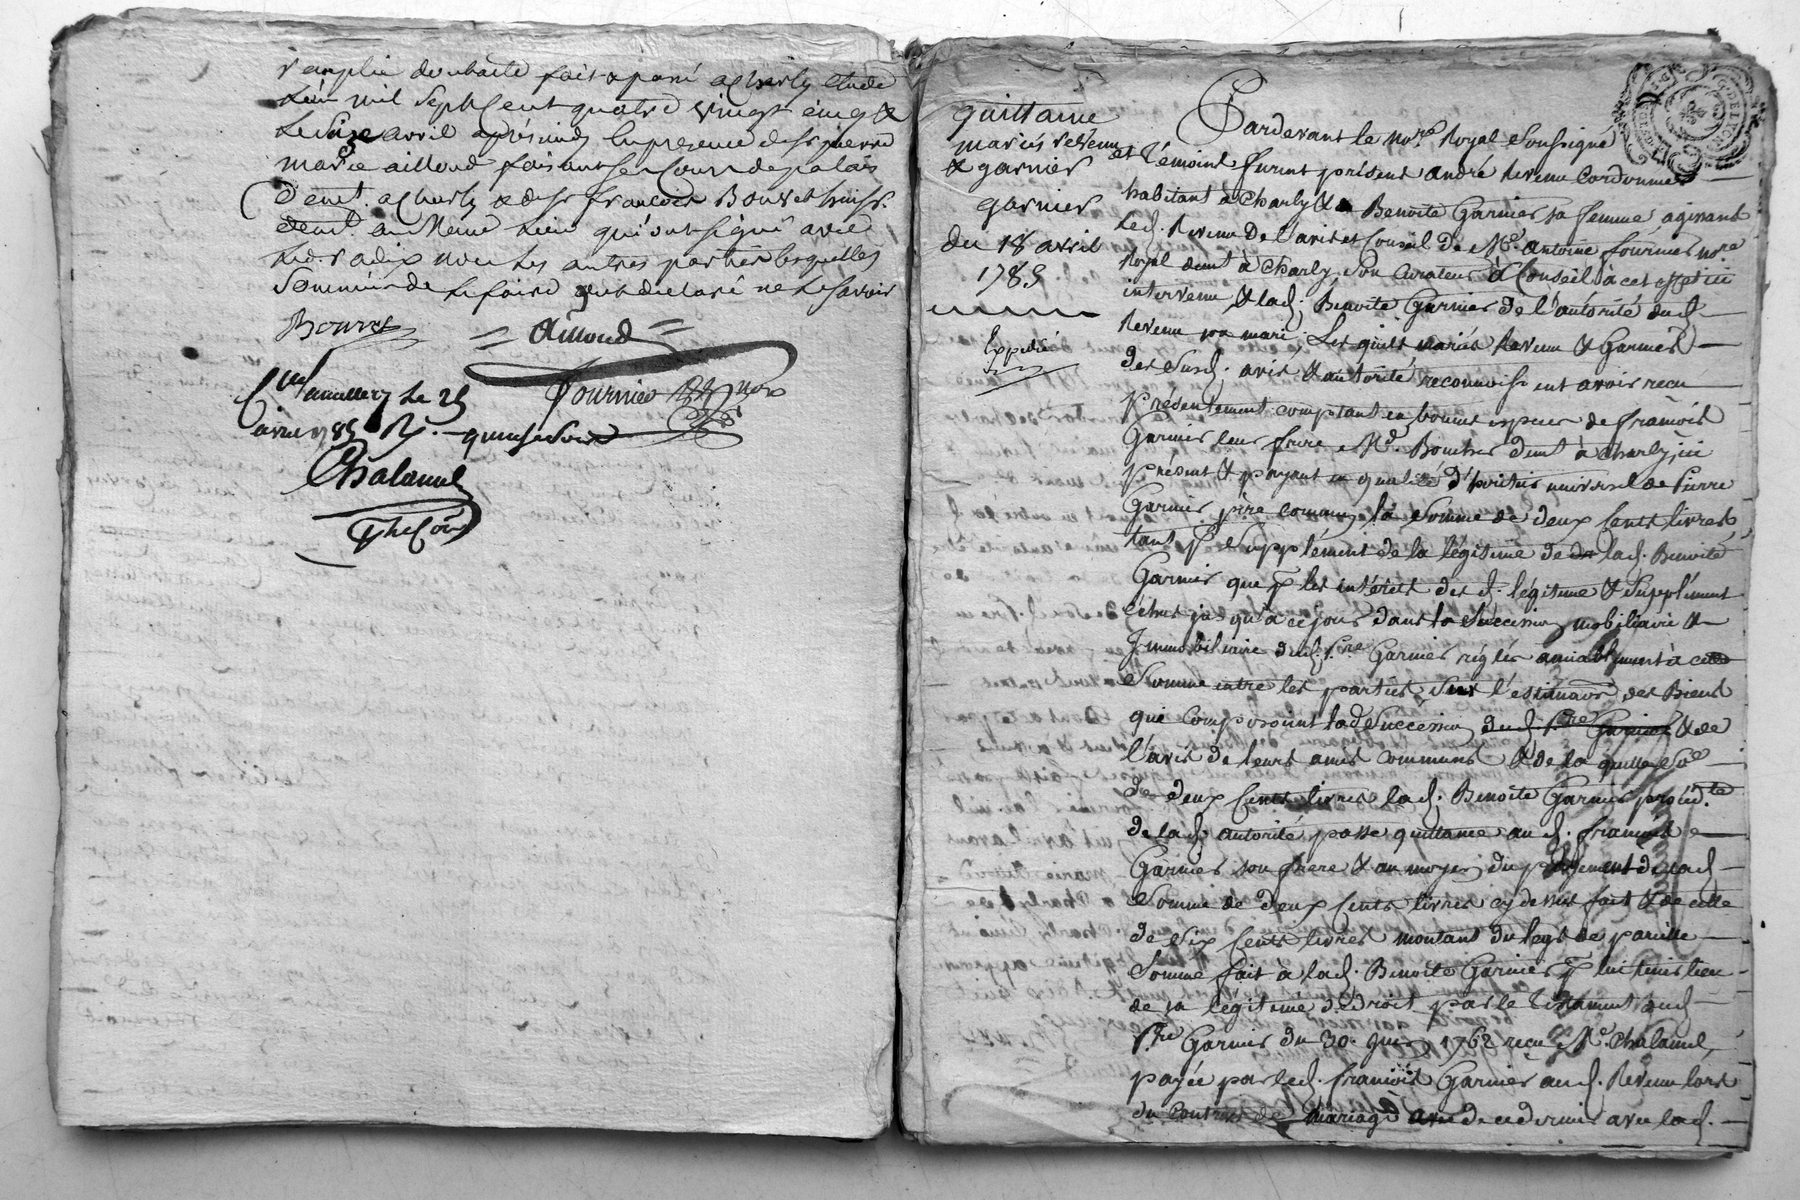 fait & passé a Charly étude
mil Sept Cent quatre vingt cinq &
Le Seize avril après midy En presence de Sr pierre
marie ailloud faisant Ses Cours de palais
demt. a Charly & de Sr françois Bouvet huissr.
demt. au Meme Lieu qui ont Signé avec
Led. les autres parties lesquelles
Sommées de Le faire ont declaré ne Le Savoir
Bouvet
Ailloud
Fournier nore
le 25
avril 1785 R. quinze Sols
Chalamel
quittance
mariés revenu
& garnier
garnier
du 18 avril
1785
Expedié
Pardevant le nore. Royal Soussigné
et témoins furent présents andré Revenu Cordonnier
habitant à Charly & Benoite Garnier sa femme, agissant
Led. Revenu de l'avis et Conseil de Me. antoine fournier nore
Royal demt à Charly Son Curateur à Conseil à cet effet ici
intervenu & lad. Benoite Garnier de l'autorité dud.
Revenu son mari, Lesquels mariés Revenu & Garnier
des Susd. avis & autorité reconnoissent avoir reçu
présentement comptant en bonnes espèces de françois
Garnier leur frere Md. Boucher demt à Charly, ici
présent & payant en qualité d'héritier universel de Pierre
Garnier père commun, la Somme de deux Cents livres
tant pr Supplément de la légitime de lad. Benoite
Garnier que pr les intérêts desd. légitime & Supplément
échus jusqu'à ce jour dans la Succession mobiliaire &
Immobiliaire dud. Pre Garnier réglés amiablement à cette
Somme entre les parties, Sur l'estimaon des Biens
qui composoient lad Succession dud. Pre Garnier & de
l'avis de leurs amis communs & de laquelle So͞e
de deux Cents livres lad. Benoite Garnier procédte
de lad. autorité passe quittance aud. françois
Garnier son frere & au moyen du payement de lad
Somme de deux Cents livres cy dessus fait & de celle
de Six Cents livres montant du legs de pareille
Somme fait à lad. Benoite Garnier pr lui tenir lieu
de sa légitime de droit par le testament dud
Pre Garnier du 30. 1762 reçu Me. Chalamel,
payée par led. françois Garnier aud. Revenu lors
du Contrat de mariage de ce dernier avec lad.